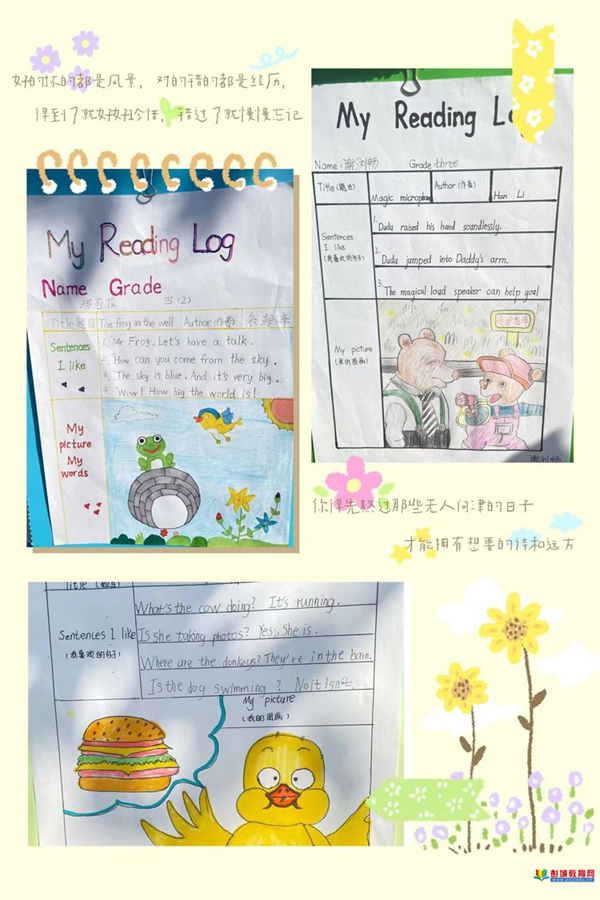 好的坏的都是风景，对的错的都是经历，
得到了就好好珍惜，错过了就慢慢忘记
My Reading Log
Name Grade
四(2)
Title 题目 The frog in the well Author 作者
Sentences I like
1. Mr Frog. Let's have a talk.
2. How can you come from the sky.
3. The sky is blue. And it's very big.
4. Wow! How big the world is!
My picture
My words
My Reading Lo
Name: Grade: three
Title (题目) Magic microphone Author (作者) Han Li
Sentences I like (我喜欢的句子)
1. Dudu raised his hand soundlessly.
2. Dudu jumped into Daddy's arm.
3. The magical loud speaker can help you!
My picture (我的图画)
你得先熬过那些无人问津的日子
才能拥有想要的诗和远方
Title (题目)
Sentences I like (我喜欢的句子)
What's the cow doing? It's running.
Is she taking photos? Yes, she is.
Where are the donkeys? They're in the barn.
Is the dog swimming? No it isn't.
My picture (我的图画)
彭城教育网